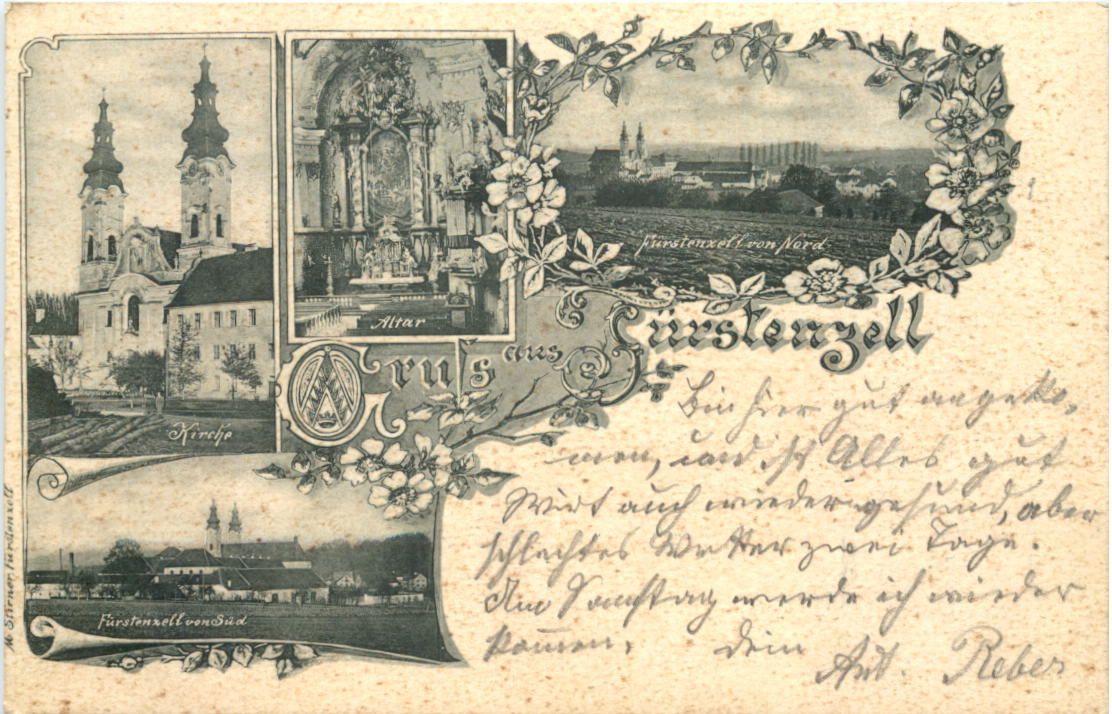 Kirche
Altar
Fürstenzell von Nord
Gruss aus Fürstenzell
Fürstenzell von Süd
Bin hier gut angeko-
men, und ist Alles gut
Wirt auch wieder gesund, aber
schlechtes Wetter zwei Tage.
Am Samstag werde ich wieder
kom̄en. Dein
Ant. Reber
M. Stirner, Fürstenzell